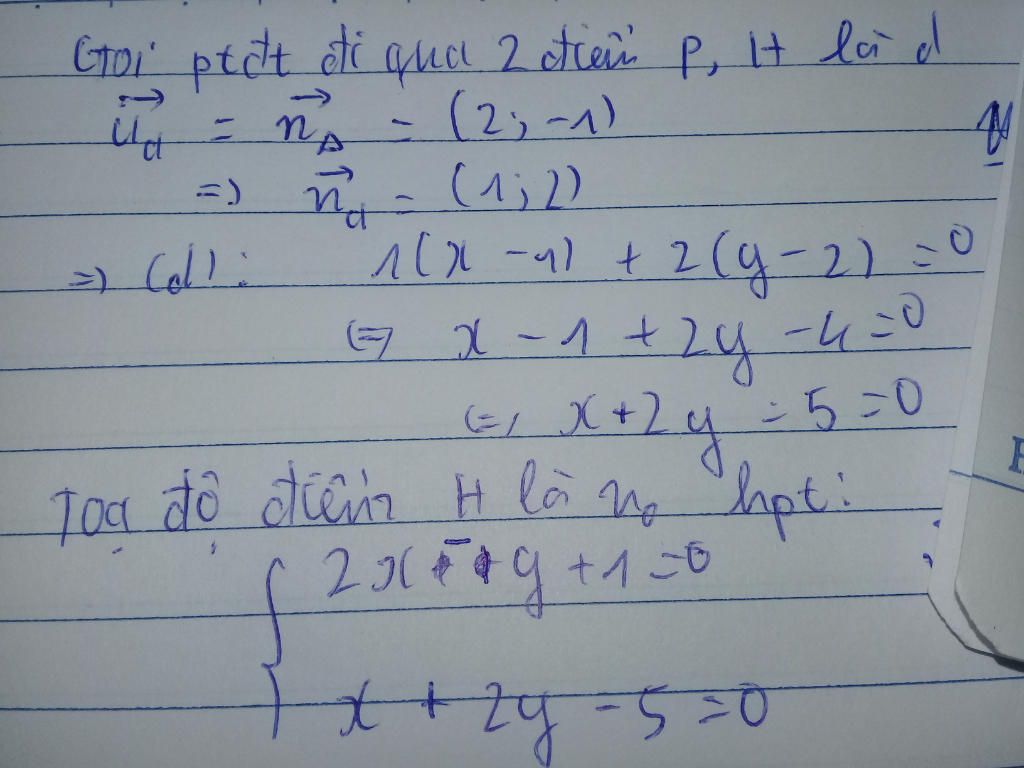 Gọi ptđt đi qua 2 điểm P, H là d
$\vec{u_d} = \vec{n_\Delta} = (2; -1)$
=> $\vec{n_d} = (1; 2)$
=> (d): 1(x - 1) + 2(y - 2) = 0
<=> x - 1 + 2y - 4 = 0
<=> x + 2y - 5 = 0
Toạ độ điểm H là no hpt:
2x - y + 1 = 0
x + 2y - 5 = 0